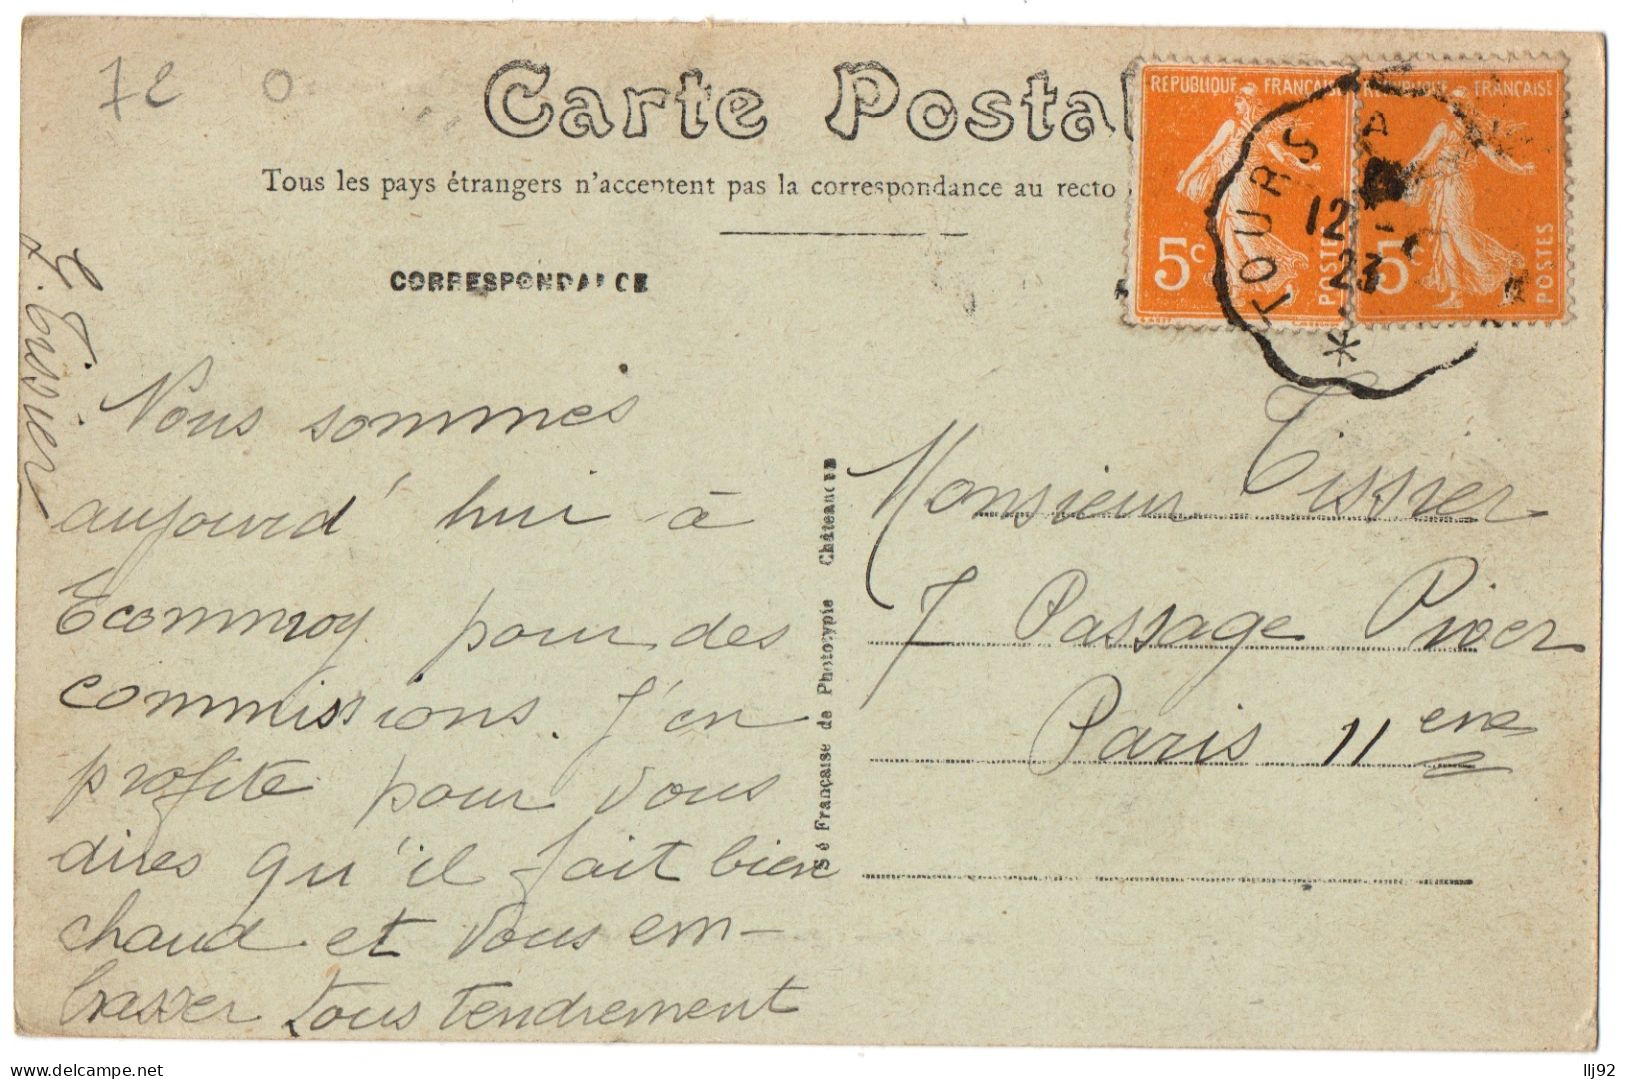 72 0
Carte Postal
Tous les pays étrangers n'acceptent pas la correspondance au recto
CORRESPONDANCE
REPUBLIQUE FRANÇAISE
5c
POSTES
REPUBLIQUE FRANÇAISE
5c
POSTES
TOURS A
12
23
*
G. Tissier
Nous sommes
aujourd'hui à
Ecommoy pour des
commissions. J'en
profite pour vous
dires qu'il fait bien
chaud et vous em-
brasser tous tendrement
Sé Française de Photocypie Châteaneuf
Monsieur Tissier
7 Passage Piver
Paris 11eme
Delcampe.net
llj92